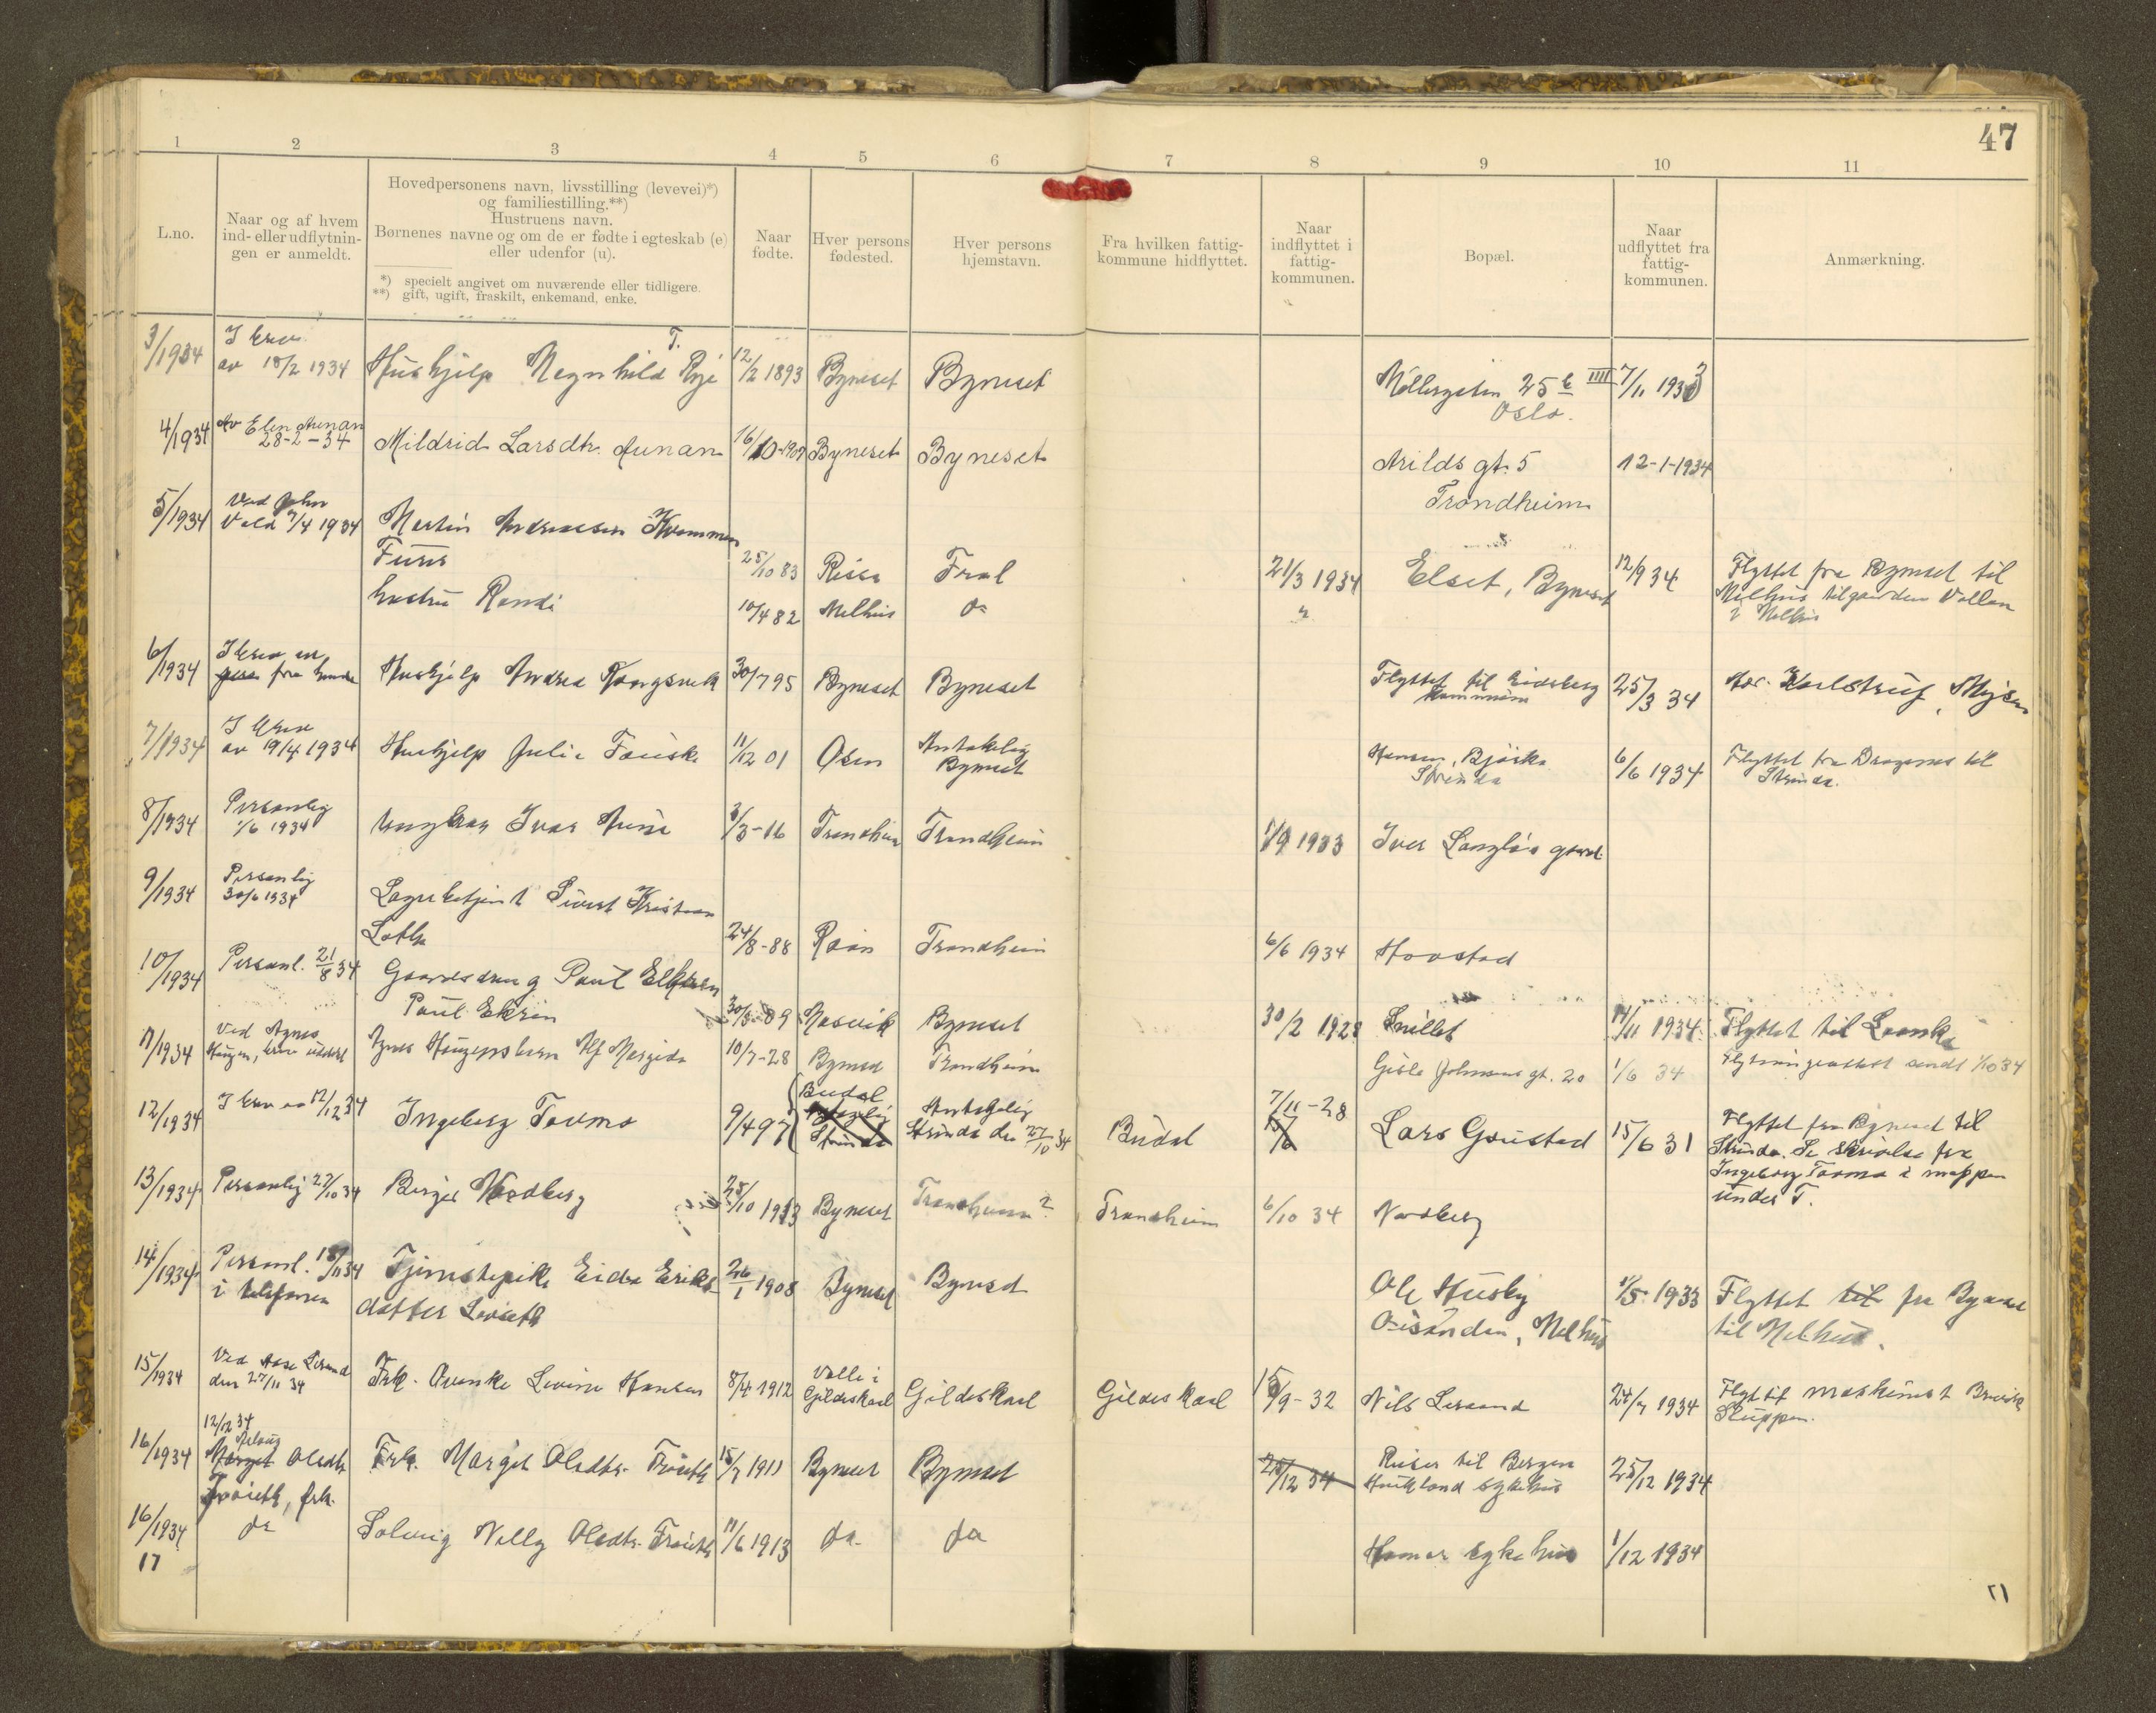 47
1 2 3 4 5 6 7 8 9 10 11
L.no.
Naar og af hvem
ind- eller udflytnin-
gen er anmeldt.
Hovedpersonens navn, livsstilling (levevei)*)
og familiestilling.**)
Hustruens navn.
Børnenes navne og om de er fødte i egteskab (e)
eller udenfor (u).
*) specielt angivet om nuværende eller tidligere.
**) gift, ugift, fraskilt, enkemand, enke.
Naar
fødte.
Hver persons
fødested.
Hver persons
hjemstavn.
Fra hvilken fattig-
kommune hidflyttet.
Naar
indflyttet i
fattig-
kommunen.
Bopæl.
Naar
udflyttet fra
fattig-
kommunen.
Anmærkning.
3/1934 av 18/2 1934 Hushjelp Magnhild T. Rye 12/2 1893 Byneset Byneset Møllergaten 25 III 7/11 1933
Oslo.
4/1934 Av Elen Aunan
28-2-34 Mildrid Larsdtr. Aunan 16/10-1907 Byneset Byneset Arilds gt. 5 12-1-1934
Trondheim
5/1934 Ved John
Vold 7/4 1934 Martin Andreassen Kvammen
Furu 25/10 83 Rissa 21/3 1934 Elset, Byneset 12/9 34 Flyttet fra Byneset til
Melhus til gaarden Vollan
i Melhus
hustru Randi 10/4 82 Melhus do "
6/1934 Hushjelp Andrea 30/7 95 Byneset Byneset Flyttet til Eidsberg
kommune 25/3 34 Adr. Karlstrup, Mysen
7/1934 av 19/4 1934 Hushjelp Julie Fauske 11/12 01 Osen Antakelig
Byneset Hansen, Bjørka
Strinda 6/6 1934 Flyttet fra til
Strinda.
8/1934 Personlig
1/6 1934 Ungkar Ivar Aune 3/3-16 Trondheim Trondheim 1/9 1933 Iver Langlös gaard
9/1934 Personlig
30/6 1934 Lagerbetjent Sivert Kristian
24/8-88 Roan Trondheim 6/6 1934 Hovstad
10/1934 Personl. 21/8 34 Gaardsdreng Paul
Paul Ekren 30/3-89 Byneset 30/2 1928 14/11 1934 Flyttet til
11/1934 Ved Agnes
Haugen, Agnes Haugens barn Alf Margido 10/7-28 Byneset Trondheim Gisle Johnsons gt. 20 1/6 34 sendt 1/10 34
12/1934 17/12 34 Ingeborg Tovmo 9/4 97 Budal
Strinda Antagelig
Strinda den 27/10 34 Budal 7/11-28 Lars Gaustad 15/6 31 Flyttet fra Byneset til
Strinda. Se skrivelse fra
Ingeborg Tovmo i mappen
under T.
13/1934 Personlig 27/10 34 Birger Nordberg 25/10 1913 Byneset Trondheim? Trondheim 6/10 34 Nordberg
14/1934 Personl. 18/11 34
i telefonen Tjenestepike Eids Eriks-
datter 26/1 1908 Byneset Byneset Ole Husby
Øisanden, Melhus 1/5 1933 Flyttet til fra Byneset
til Melhus.
15/1934 Ved
den 27/11 34 Frk. Hansen 8/4 1912 Valle i
Gildeskaal Gildeskaal Gildeskaal 15/9-32 Nils 24/7 1934 maskinist
Sluppen.
12/12 34
16/1934 Margit Oledtr.
frk. Frk. Margit Oledtr. Frøseth 15/7 1911 Byneset Byneset 25/12 34 Reiser til Bergen
Haukland sykehus 25/12 1934
16/1934 do Solveig Nelly Oledtr. Frøseth 11/6 1913 do do Hamar sykehus 1/12 1934
17